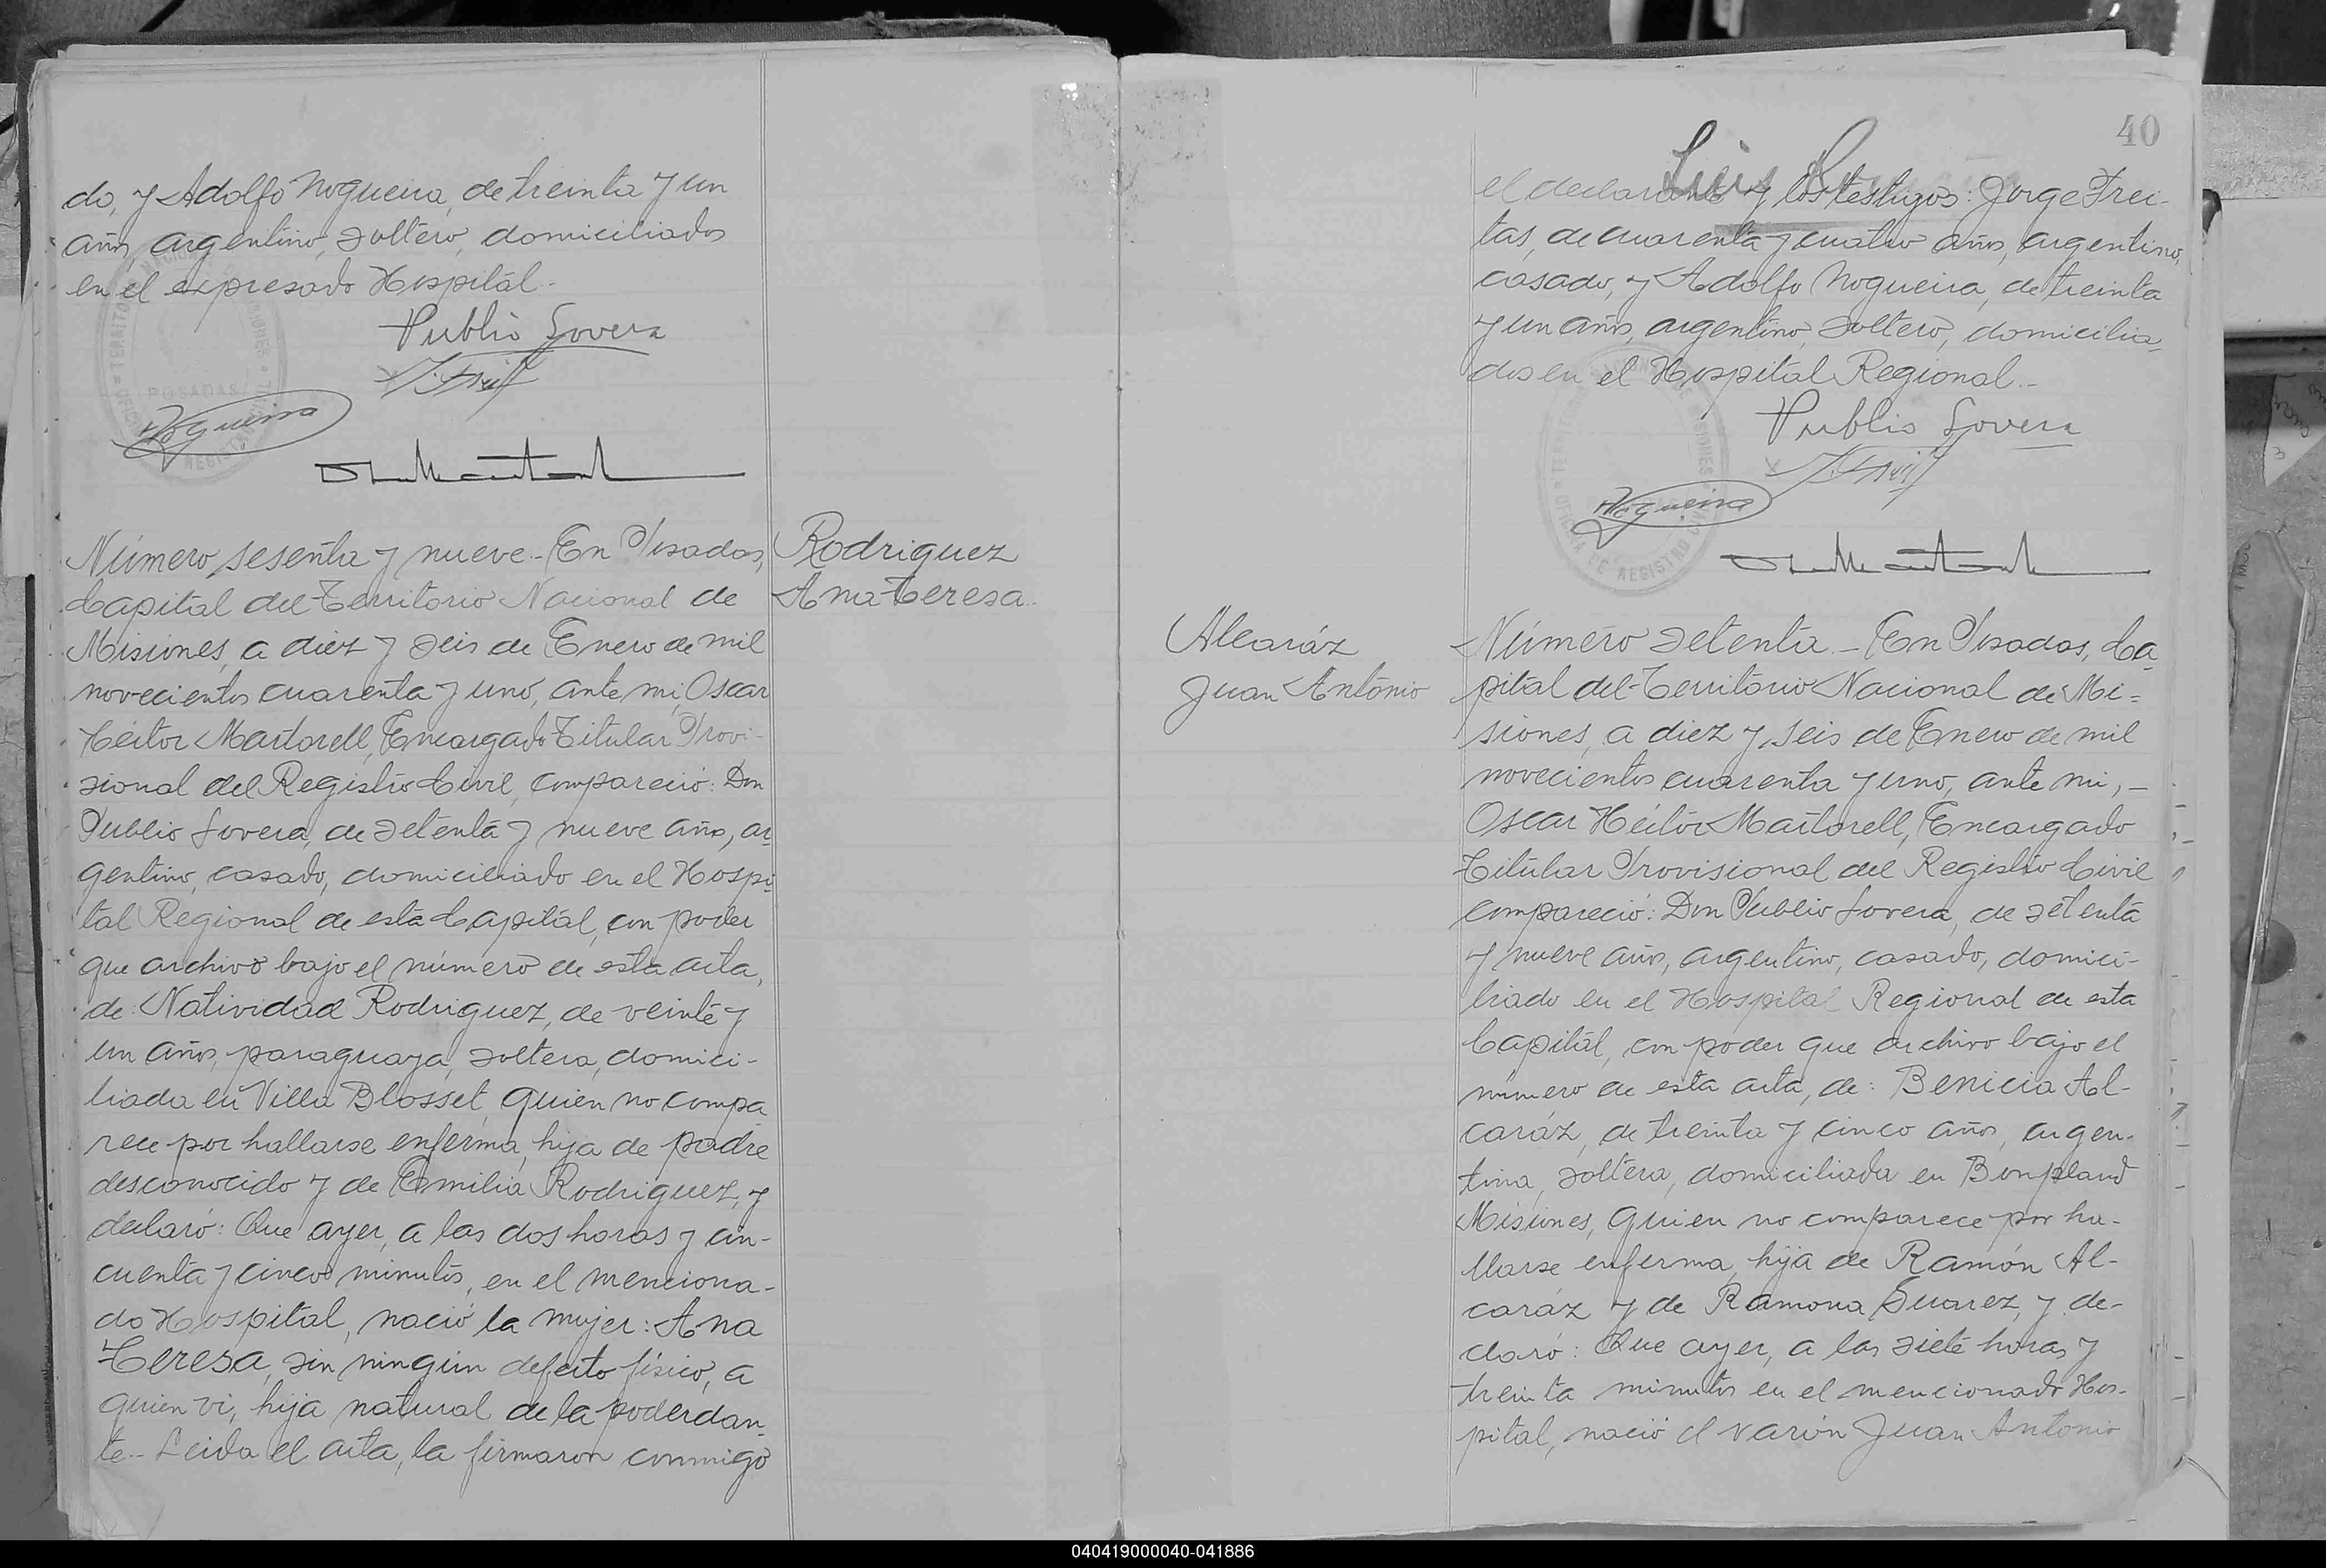 do, y Adolfo Nogueira, de treinta y un
años, argentino, soltero, domiciliados
en el expresado Hospital.-
Publio Lovera
Nogueira
POSADAS
Número sesenta y nueve.- En Posadas,
Capital del Territorio Nacional de
Misiones, a diez y seis de Enero de mil
novecientos cuarenta y uno, ante mi, Oscar
Héctor Martorell, Encargado Titular Provi-
sional del Registro Civil, compareció: Don
Publio Lovera, de setenta y nueve años, ar-
gentino, casado, domiciliado en el Hospi-
tal Regional de esta Capital, con poder
que archivo bajo el número de esta acta,
de: Natividad Rodriguez, de veinte y
un años, paraguaya, soltera, domici-
liada en Villa Blosset, quien no compa-
rece por hallarse enferma, hija de padre
desconocido y de Emilia Rodriguez, y
declaró: Que ayer, a las dos horas y cin-
cuenta y cinco minutos, en el menciona-
do Hospital, nació la mujer: Ana
Teresa, sin ningún defecto físico, a
quien vi, hija natural de la poderdan-
te.- Leida el acta, la firmaron conmigo
Rodriguez
Ana Teresa.-
40
Luis
el declarante y los testigos: Jorge Frei-
tas, de cuarenta y cuatro años, argentino,
casado, y Adolfo Nogueira, de treinta
y un años, argentino, soltero, domicilia-
dos en el Hospital Regional.-
Publio Lovera
Nogueira
Alcaráz
Juan Antonio
Número setenta.- En Posadas, Ca-
pital del Territorio Nacional de Mi-
siones, a diez y seis de Enero de mil
novecientos cuarenta y uno, ante mi, -
Oscar Héctor Martorell, Encargado
Titular Provisional del Registro Civil
compareció: Don Publio Lovera, de setenta
y nueve años, argentino, casado, domici-
liado en el Hospital Regional de esta
Capital, con poder que archivo bajo el
número de esta acta, de: Benicia Al-
caráz, de treinta y cinco años, argen-
tina, soltera, domiciliada en Bonpland
Misiones, quien no comparece por ha-
llarse enferma, hija de Ramón Al-
caráz y de Ramona Suarez, y de-
claró: Que ayer, a las siete horas y
treinta minutos en el mencionado Hos-
pital, nació el varón Juan Antonio
040419000040-041886